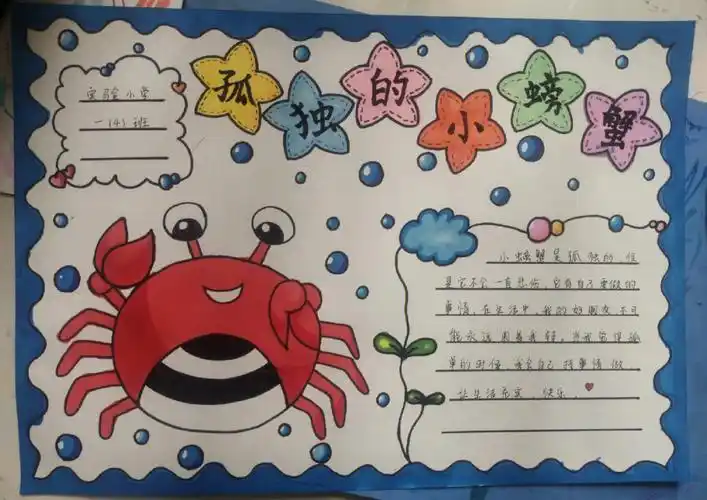 孤独的小螃蟹
实验小学
一(4)班
小螃蟹是孤独的,但
是它不会一直悲伤,它有自己要做的
事情。在生活中,我的好朋友不可
能永远围着我转。当我觉得孤
单的时候,我会自己找事情做,
让生活充实、快乐。